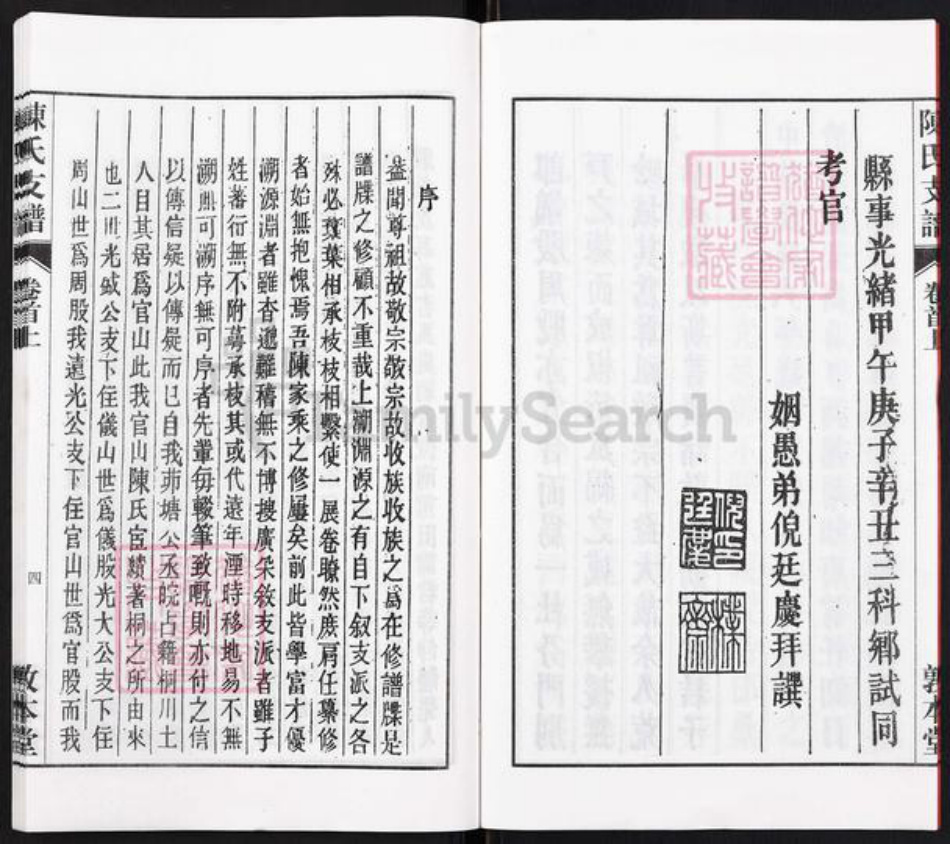 陳氏支譜 卷首上
敦本堂
縣事光緒甲午庚子辛丑三科鄉試同
考官
姻愚弟倪廷慶拜譔
序
蓋聞尊祖故敬宗敬宗故收族收族之為在修譜牒是
譜牒之修顧不重哉上溯淵源之有自下叙支派之各
殊必葉相承枝枝相繫使一展卷瞭然庶肩任纂修
者始無抱愧焉吾陳家乘之修屢矣前此皆學富才優
溯源淵者雖杳邈難稽無不博搜廣采敘支派者雖子
姓蕃衍無不附萼承枝其或代遠年湮時移地易不無
溯無可溯序無可序者先輩每輟筆致嘅則亦付之信
以傳信疑以傳疑而已自我茆塘公丞皖占籍桐川土
人目其居為官山此我官山陳氏宦績著桐之所由來
也二世光公支下住儀山世為儀股光大公支下住
周山世為周股我遠光公支下住官山世為官股而我
陳氏支譜 卷首上
四
敦本堂
FamilySearch